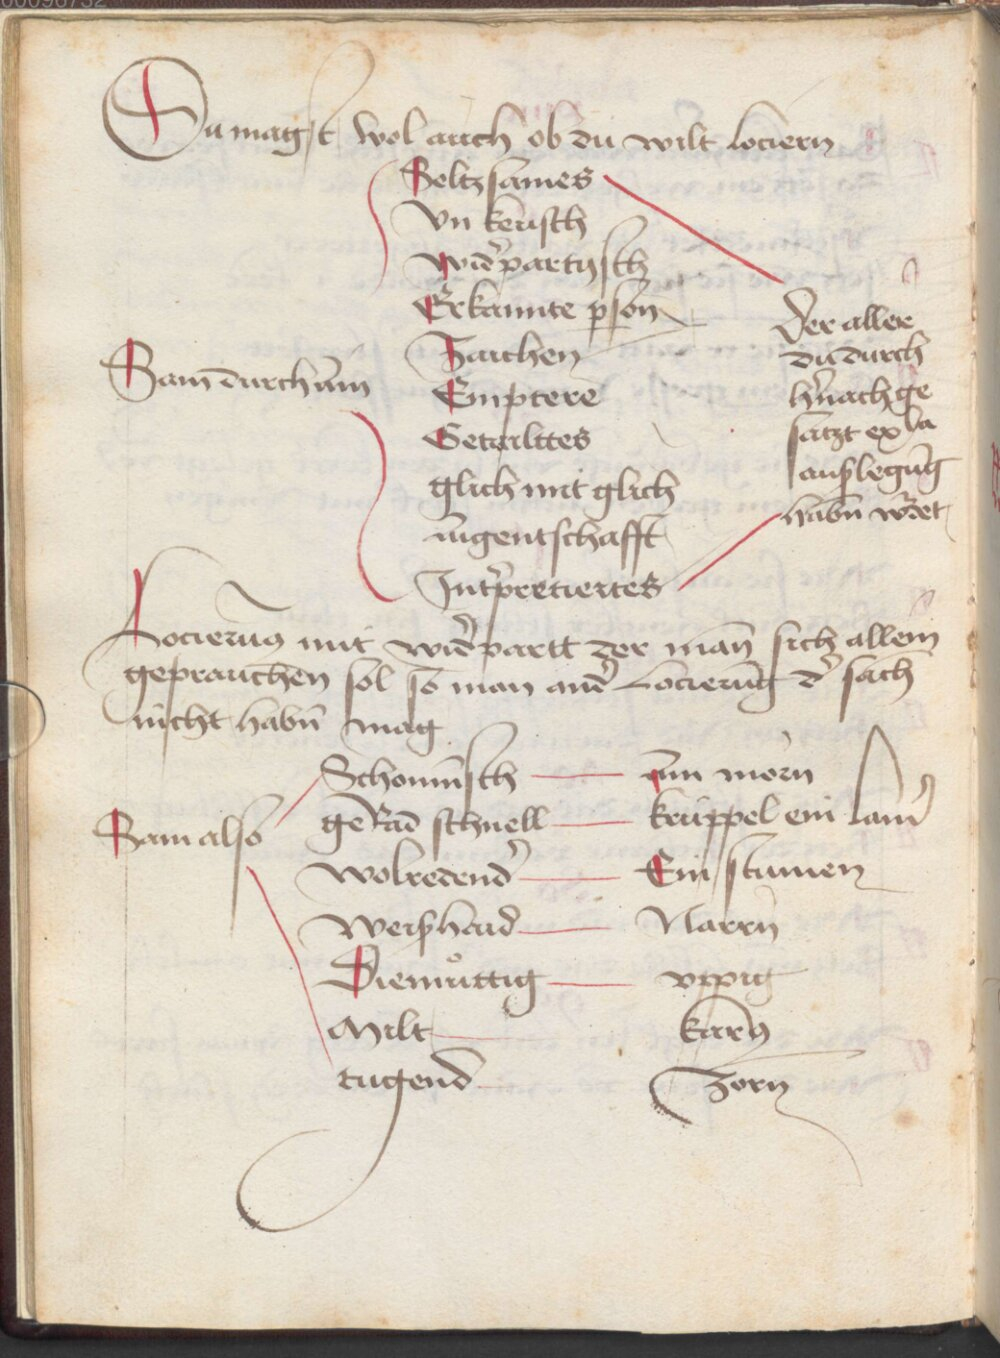 Du magst wol auch ob du wilt lociern
Seltzsames
Vn keusch
widerpartysch
Erkannte pson
Zaichen
Empterē
Getailttes
glich mit glich
aigentschafft
Intp̄retiertes
Sam durch ain
Der aller
du durch
hernach ge
satzt ex la
auslegūg
habn̄ wirdet
Locierūg mit widerpartt der man̄ sich allein
geprauchen sol so man and' Locierūg d' sach
nicht habn̄ mag
Sam also
Schonmsch — ain morn
gerad schnell — kruppel ein lam
wolredend' — Ein stumen
weishaid — Narrn
Diemůttig — vppig
Milt — karg
tugend — Zorn